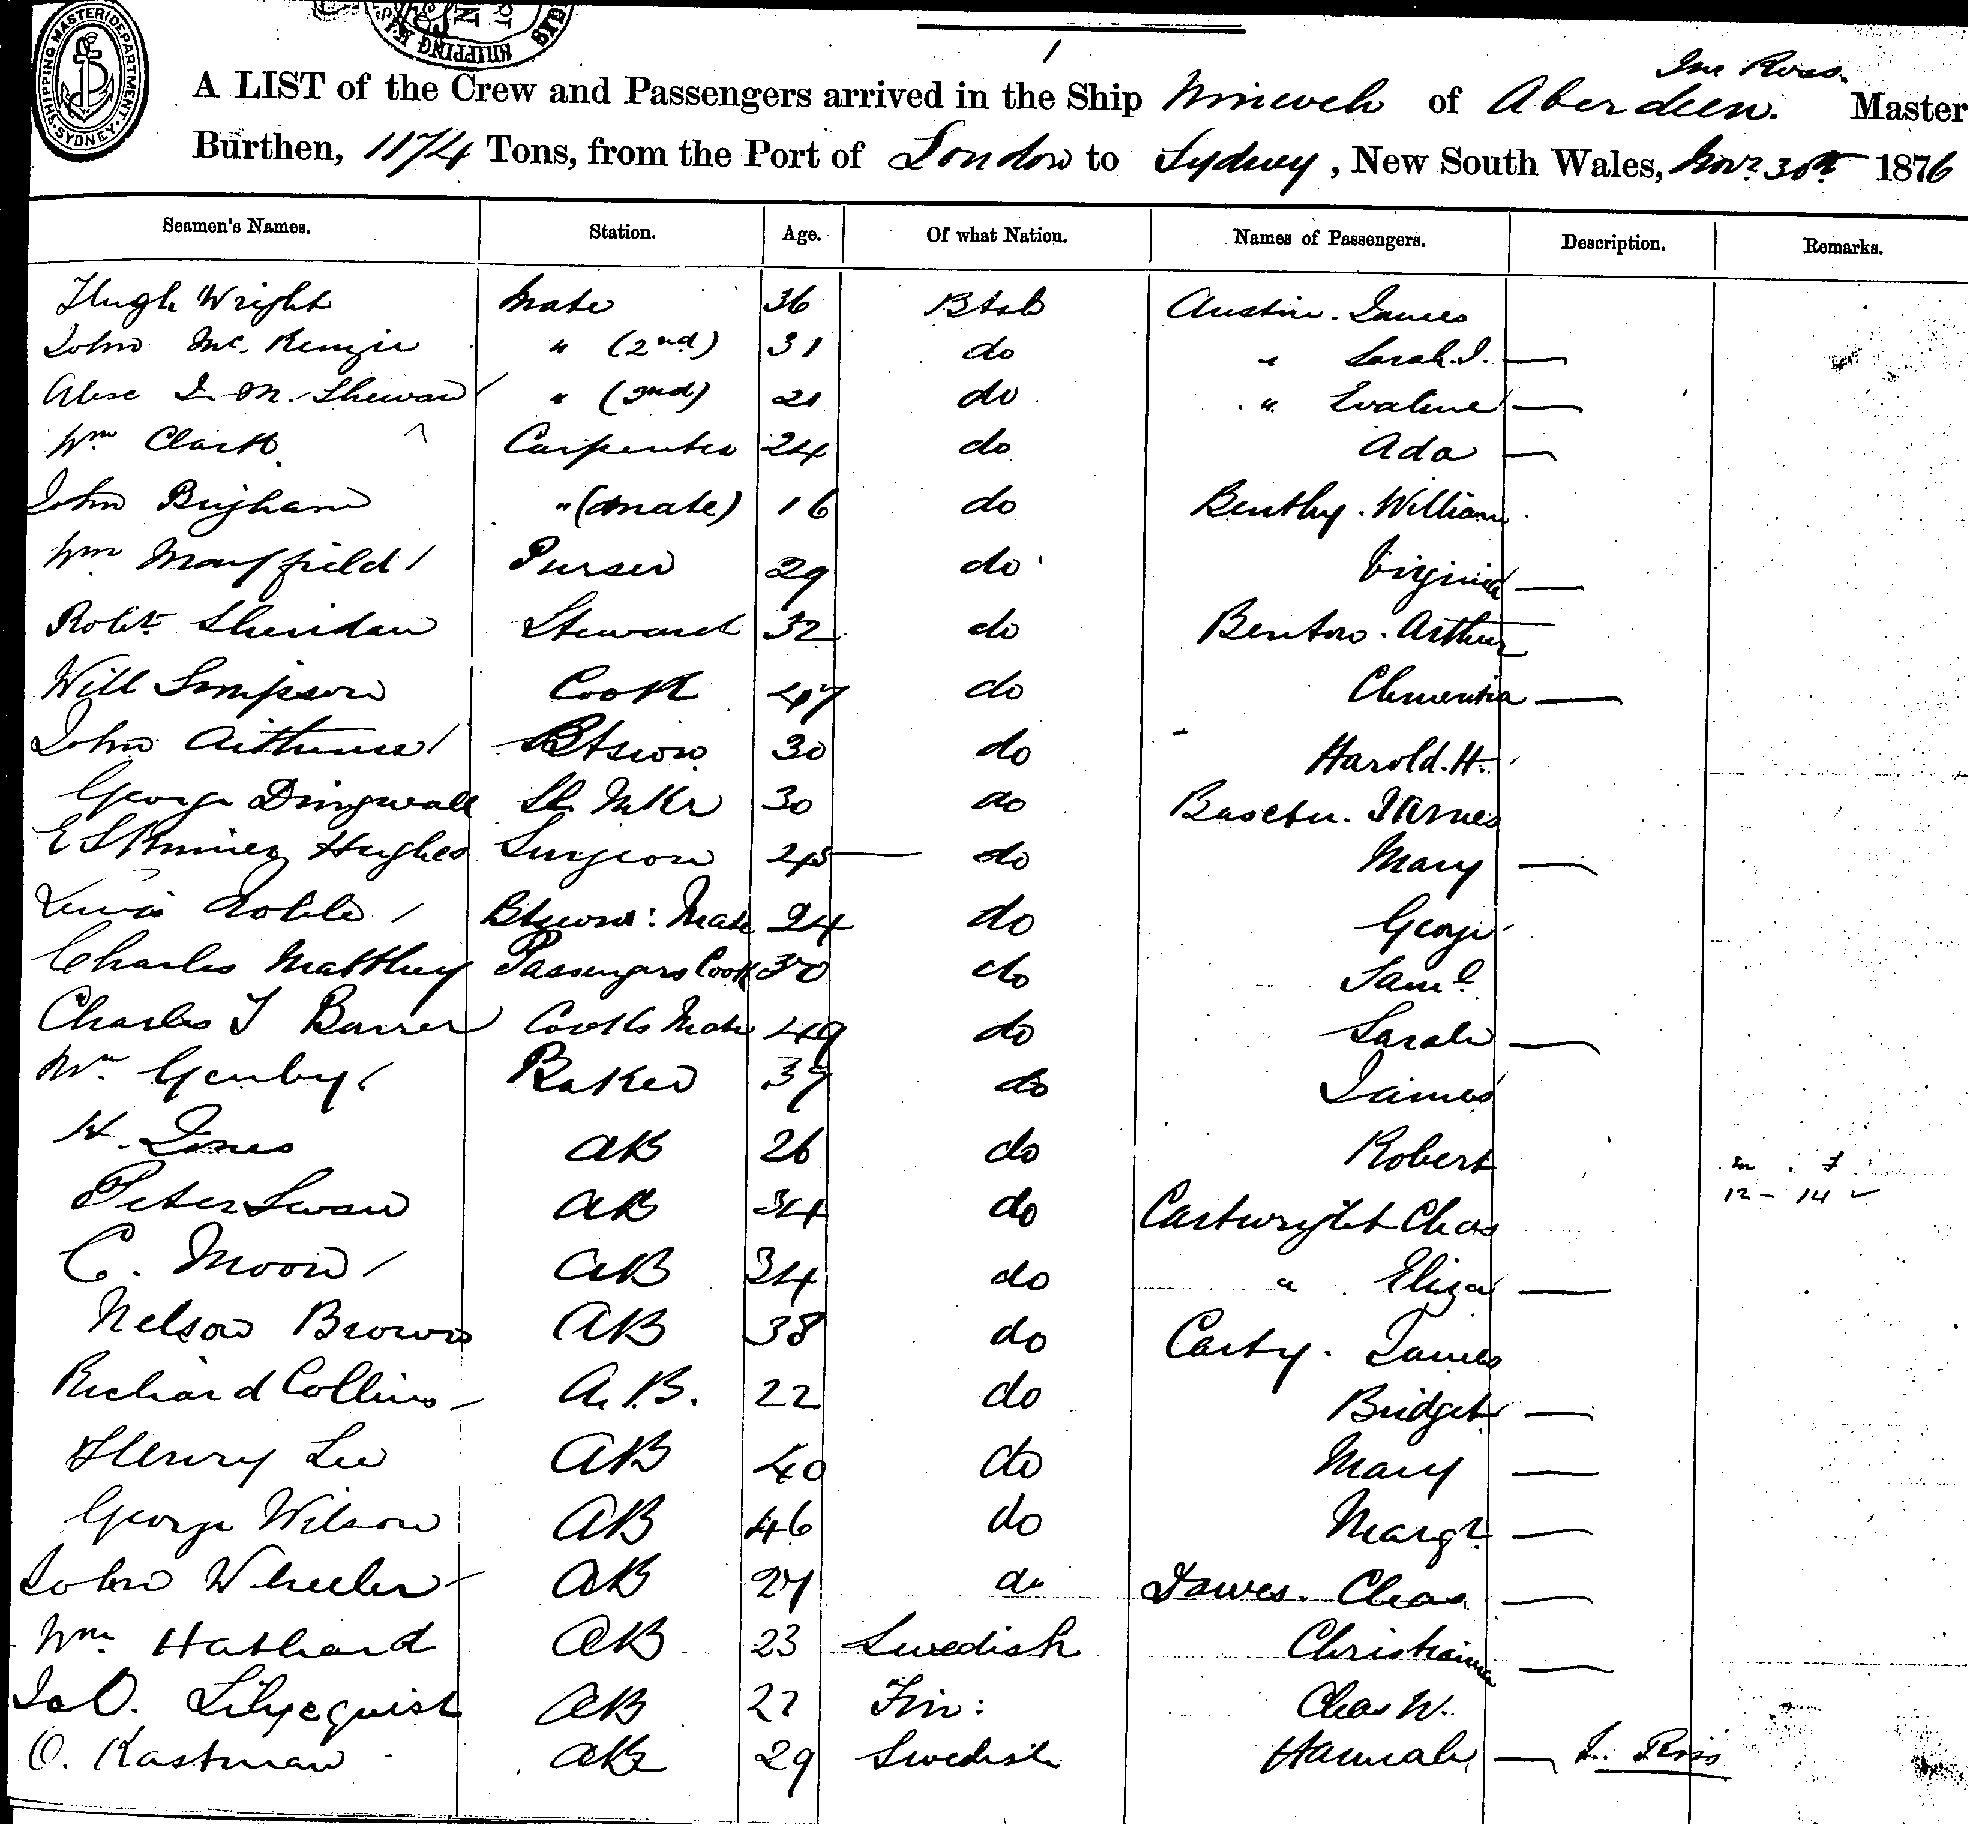 SHIPPING MASTER DEPARTMENT SYDNEY
Jno Ross.
A LIST of the Crew and Passengers arrived in the Ship Nineveh of Aberdeen. Master
Burthen, 1174 Tons, from the Port of London to Sydney, New South Wales, Novr 30th 1876
Seamen's Names. Station. Age. Of what Nation. Names of Passengers. Description. Remarks.
Hugh Wright Mate 36 Btsh Austin. James
John McKenzie " (2nd) 31 do " Sarah J. —
Alexr J. M. Shewan " (3rd) 21 do " Evaline —
Wm Clark Carpenter 24 do Ada —
John Brigham " (mate) 16 do Bentley. William
Wm Purser 29 do Virginia —
Robt. Sheridan Steward 32 do Benton. Arthur
Will Simpson Cook 47 do Clementia —
John Btswn 30 do Harold. H.
George Dingwall Sl. Mkr 30 do James
Hughes Surgeon do Mary —
Lewis Btswns: Mate 24 do George
Charles Matthey Passengers Cook 30 do Saml
Charles T Barrer Cooks Mate 49 do Sarah —
Wm Baker 37 do James
H. Jones AB 26 do Robert
m. f
12 - 14
Peter Swan AB 34 do Cartwright Chas
C. Moon AB 34 do " Eliza —
Nelson Brown AB 38 do Carty. James
Richard Collins A.B. 22 do Bridget —
Henry Lee AB 40 do Mary —
George Wilson AB 46 do Margt —
John Wheeler AB 27 do Dawes. Chas —
Wm AB 23 Swedish Christianna —
Lilyequist AB 22 Fin: Chas W.
O. Kastman AB 29 Swedish Hannah — J. Ross